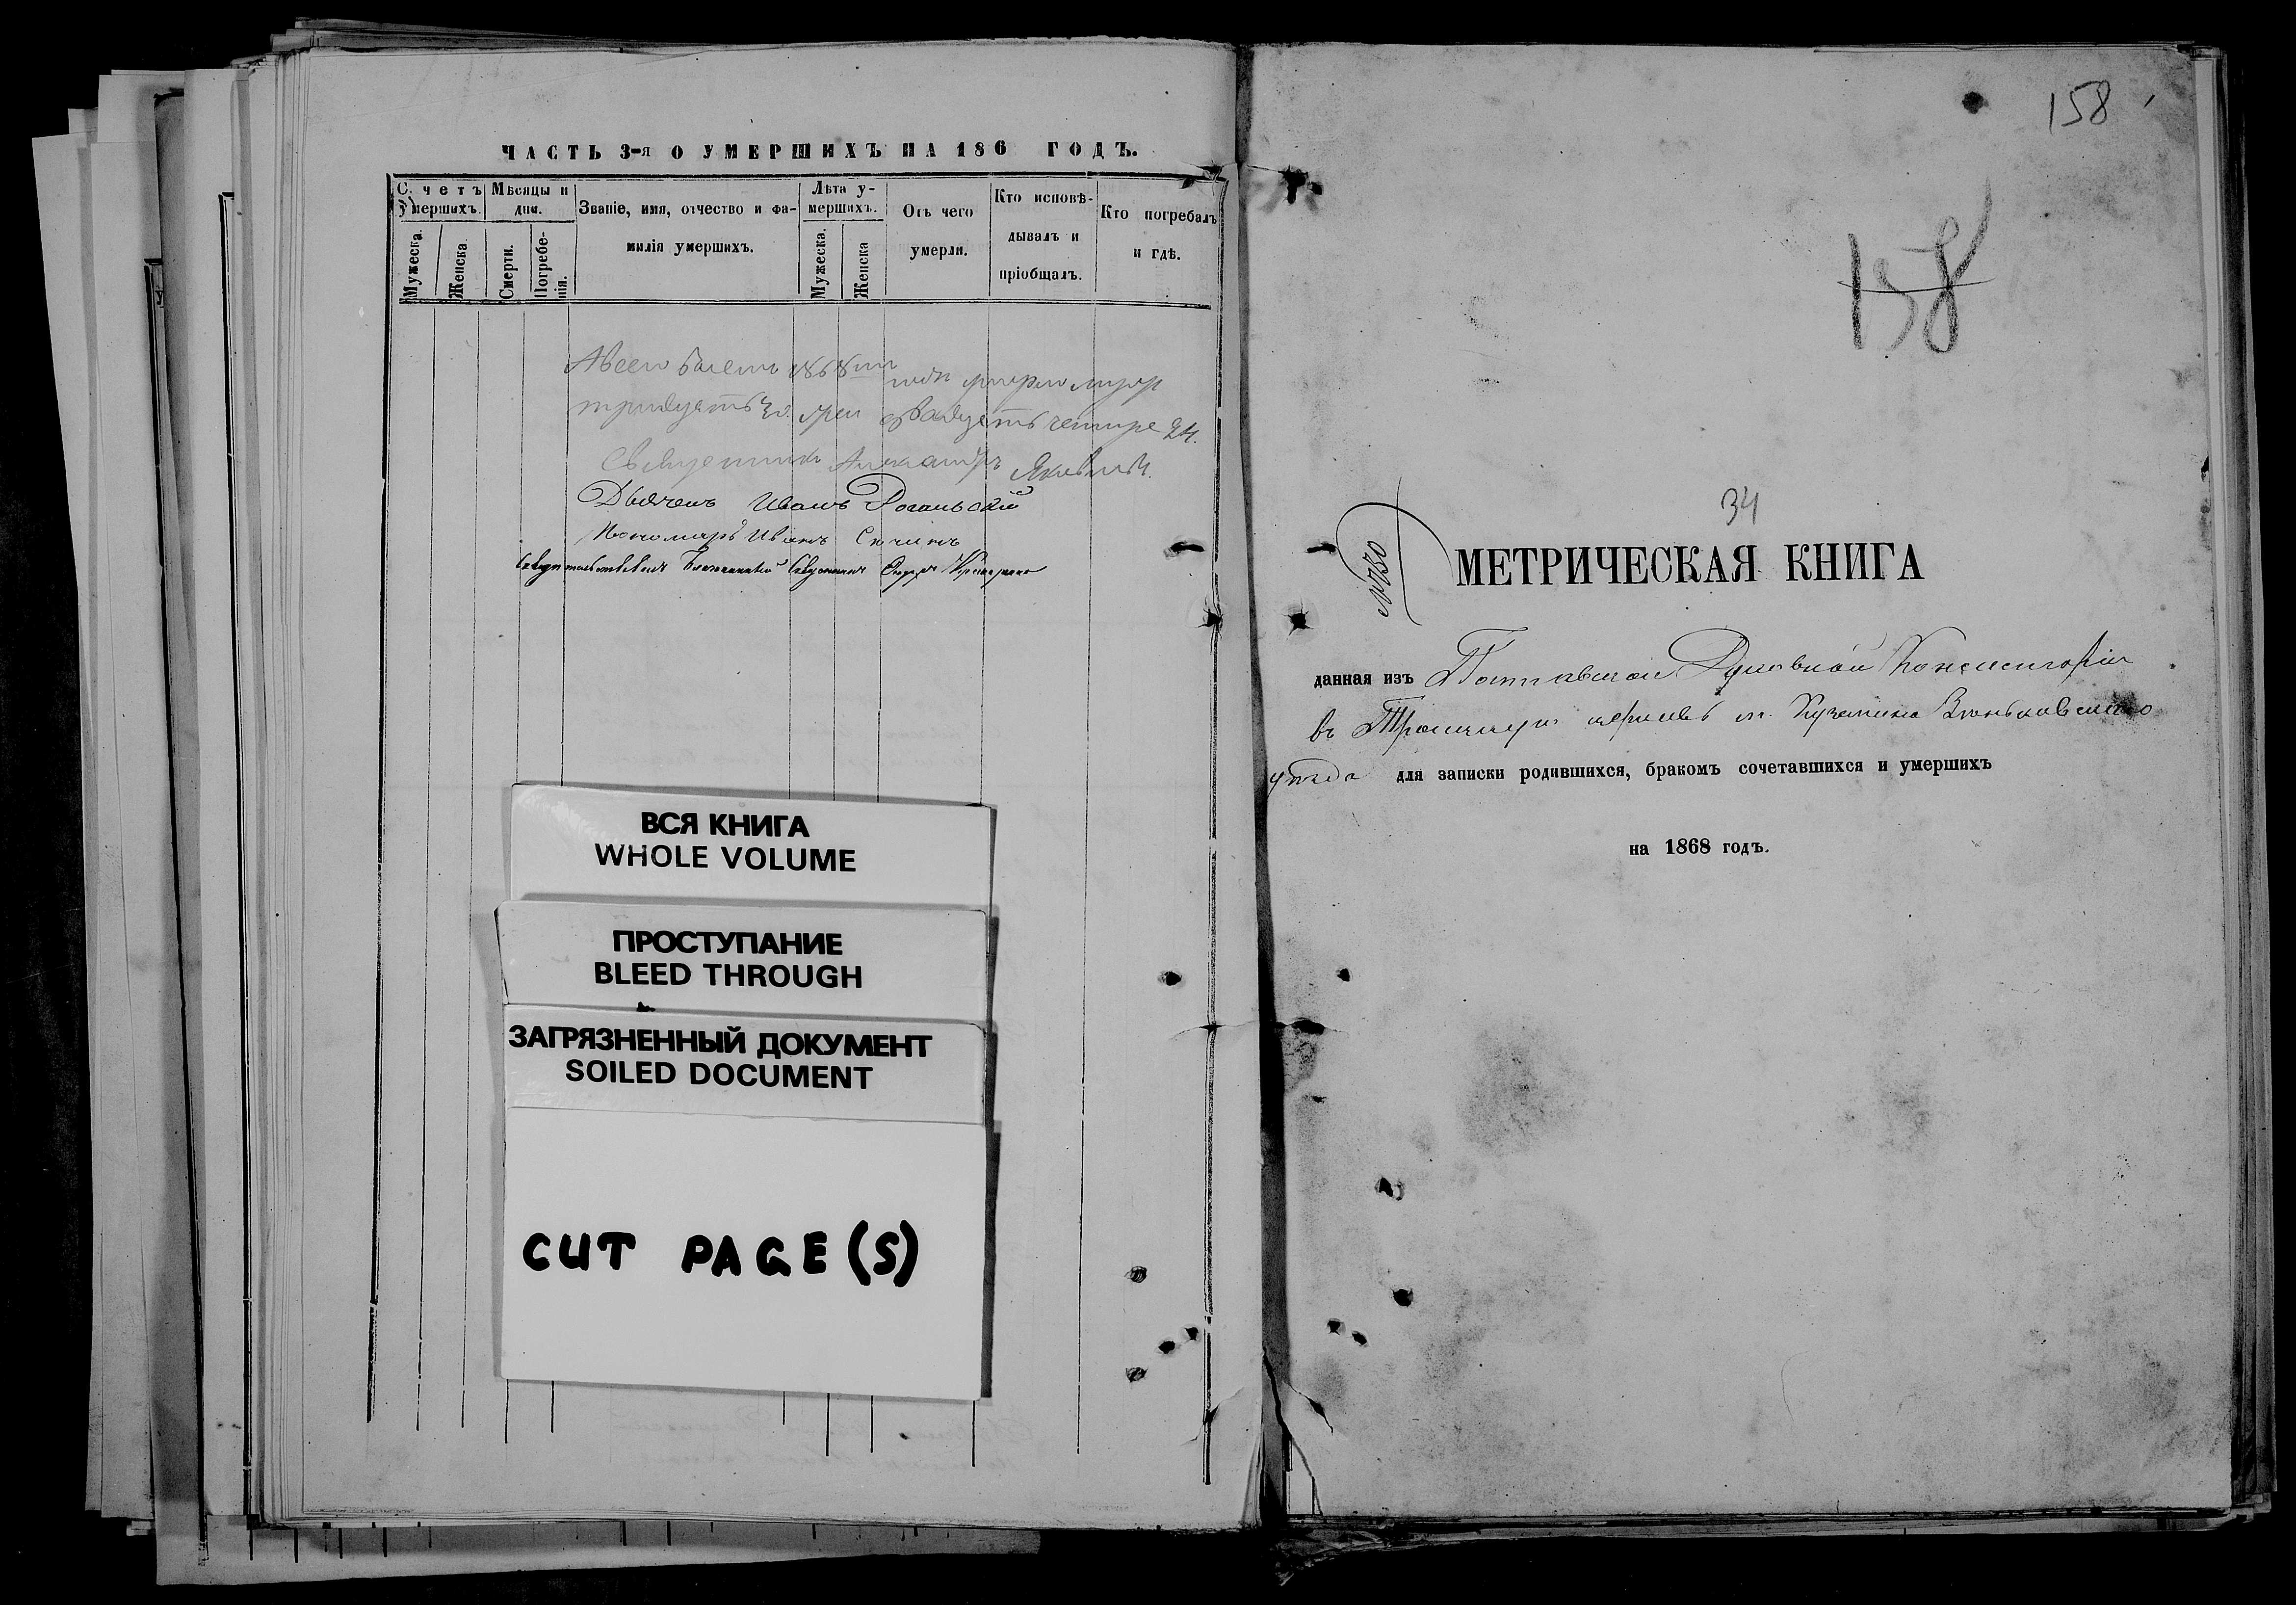 ЧАСТЬ 3-я О УМЕРШИХЪ НА 186 ГОДЪ.
Счетъ умершихъ.
Мужеска.
Женска.
Мѣсяцы и дни.
Смерти.
Погребенія.
Званіе, имя, отчество и фамилія умершихъ.
Лѣта умершихъ.
Мужеска.
Женска
Отъ чего умерли.
Кто исповѣдывалъ и пріобщалъ.
Кто погребалъ и гдѣ.
А всего 1868го года умерло муж
тридцять 30. жен двадцять четире 24.
Священникъ Александръ
Дьячекъ Иванъ
Пономарь Иванъ
Благочинный Священникъ
ВСЯ КНИГА
WHOLE VOLUME
ПРОСТУПАНИЕ
BLEED THROUGH
ЗАГРЯЗНЕННЫЙ ДОКУМЕНТ
SOILED DOCUMENT
CUT PAGE(S)
158
158
34
№730
МЕТРИЧЕСКАЯ КНИГА
данная изъ Полтавской Духовной Консисторіи
въ Троицкую церковь м. Куземина Зѣньковскаго
уѣзда для записки родившихся, бракомъ сочетавшихся и умершихъ
на 1868 годъ.